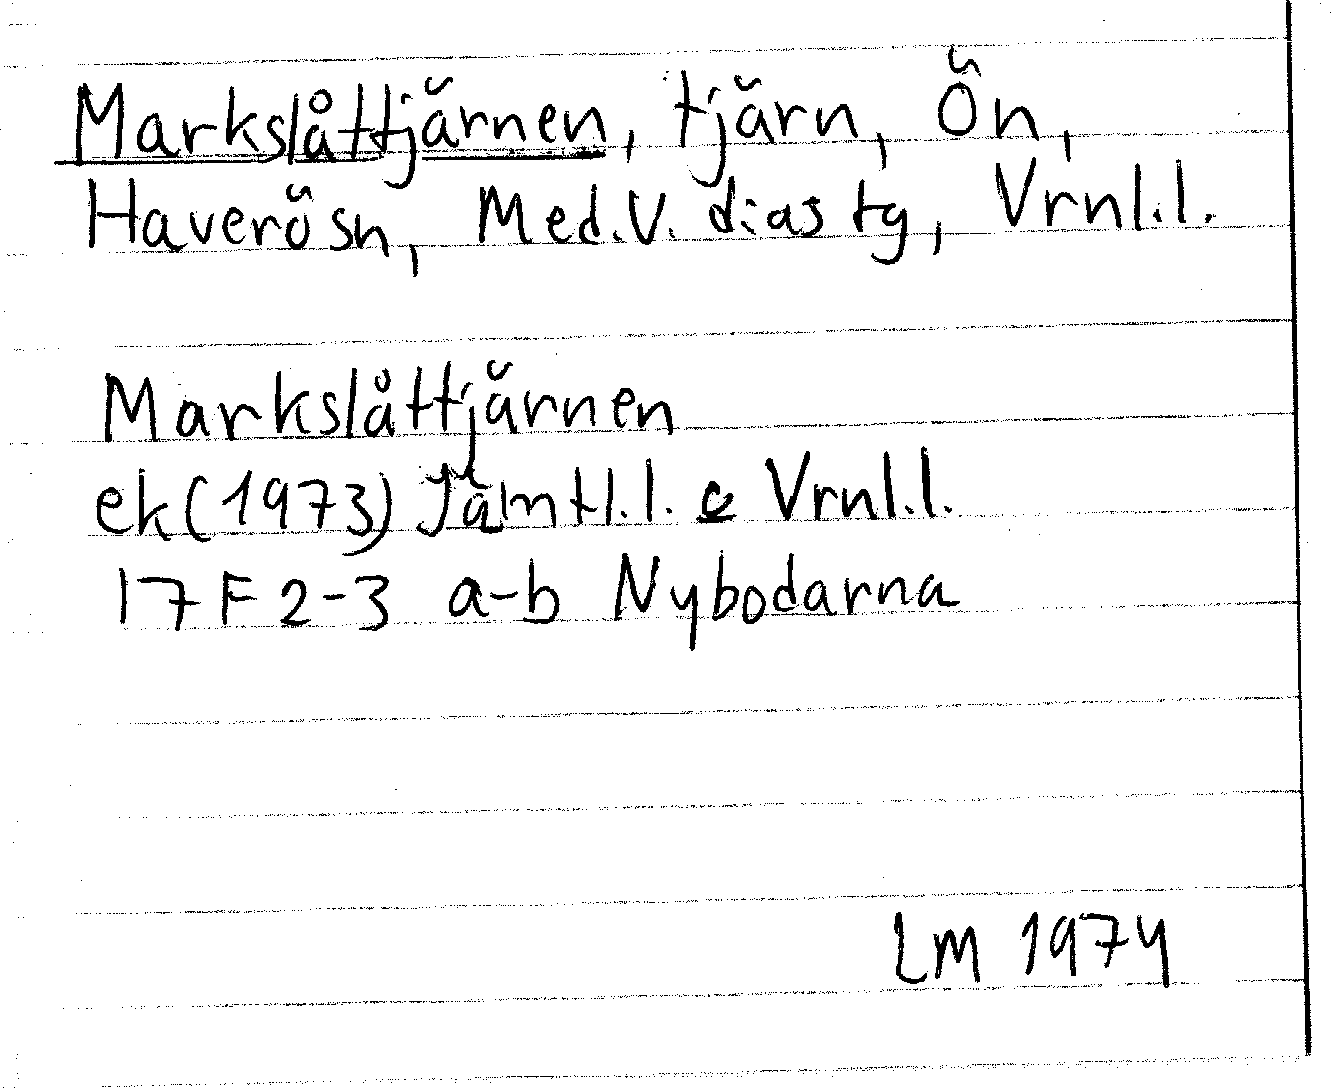 Markslåttjärnen, tjärn, Ön,
Haverösn, Med.V. diastg, Vrnl.l.
Markslåttjärnen
ek(1973) Jämtl.l. o Vrnl.l.
17F2-3 a-b Nybodarna
LM 1974